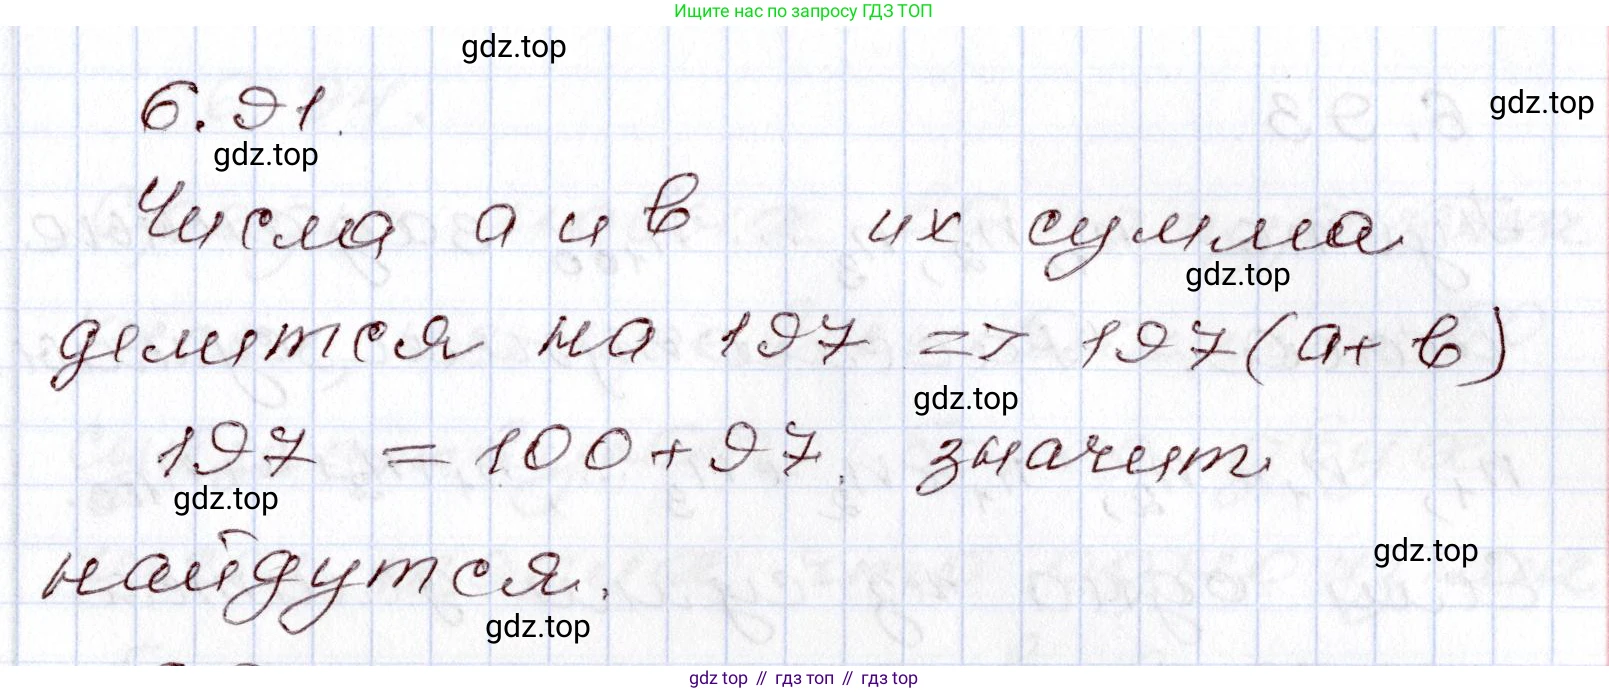 Ищите нас по запросу ГДЗ ТОП
gdz.top
6.91.
gdz.top
gdz.top
Числа а и в их сумма
gdz.top
делится на 197 => 197(а+в)
gdz.top
197 = 100+97, значит
gdz.top
gdz.top
найдутся.
gdz.top
gdz top // гдз топ // гдз top